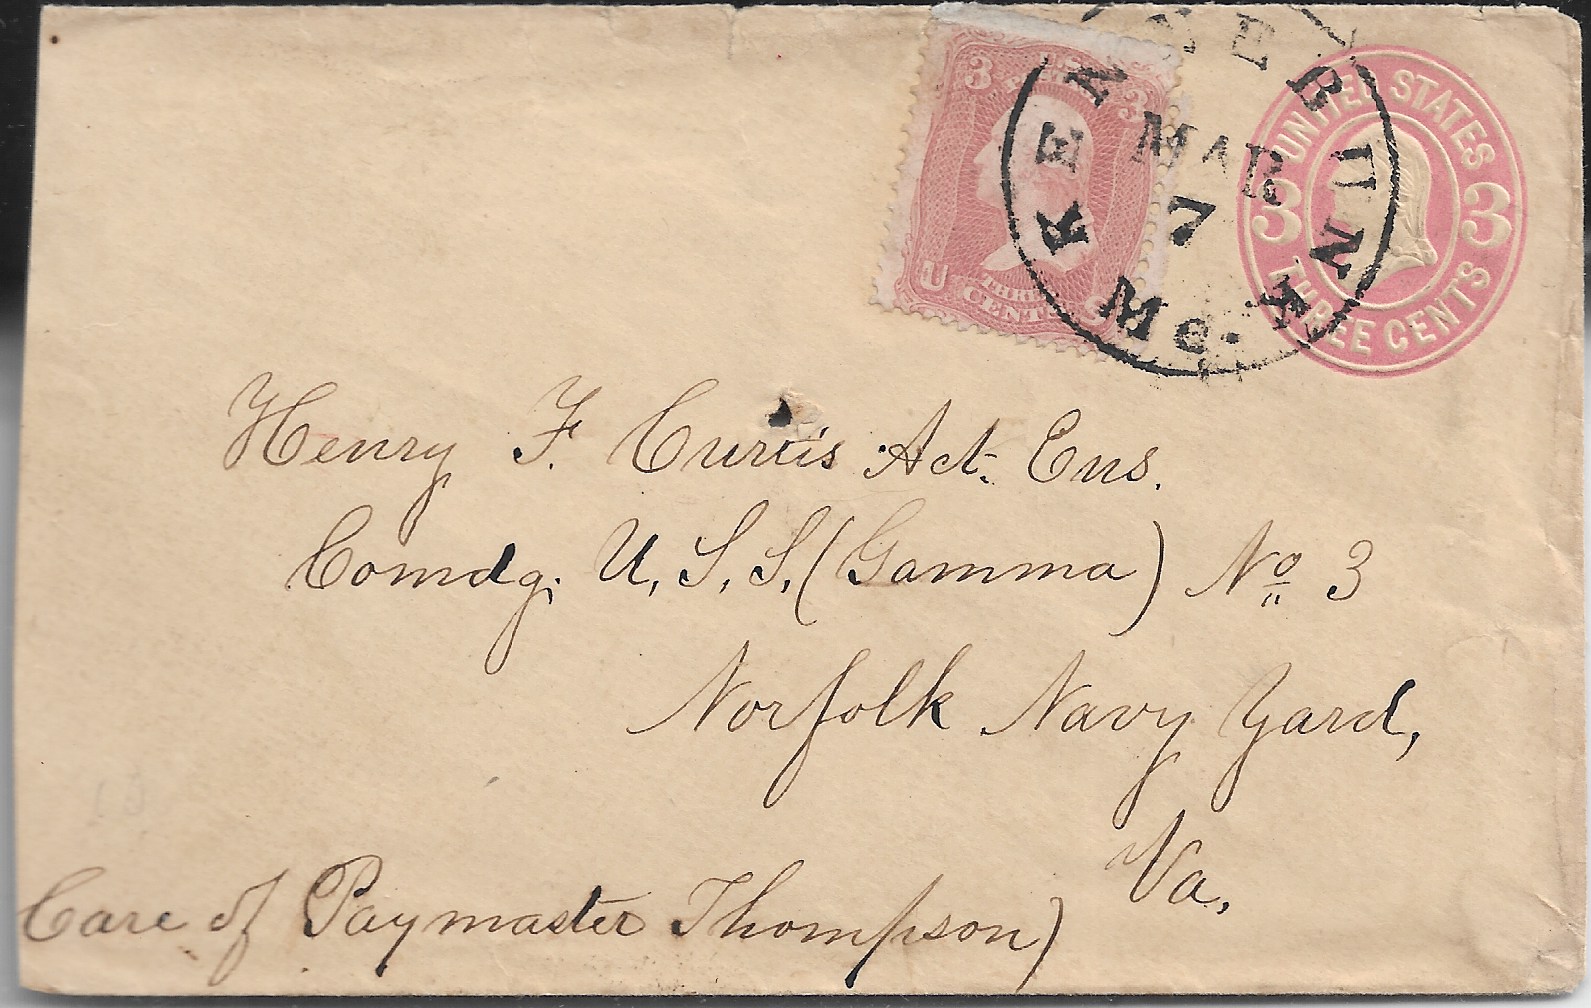 U.S.
3 3
U S
THREE
CENTS
KENNEBUNK
MAR
7
Me.
UNITED STATES
3 3
THREE CENTS
Henry F. Curtis Act. Ens.
Comdg. U. S. S. (Gamma) No 3
Norfolk Navy Yard,
Va.
Care of Paymaster Thompson)